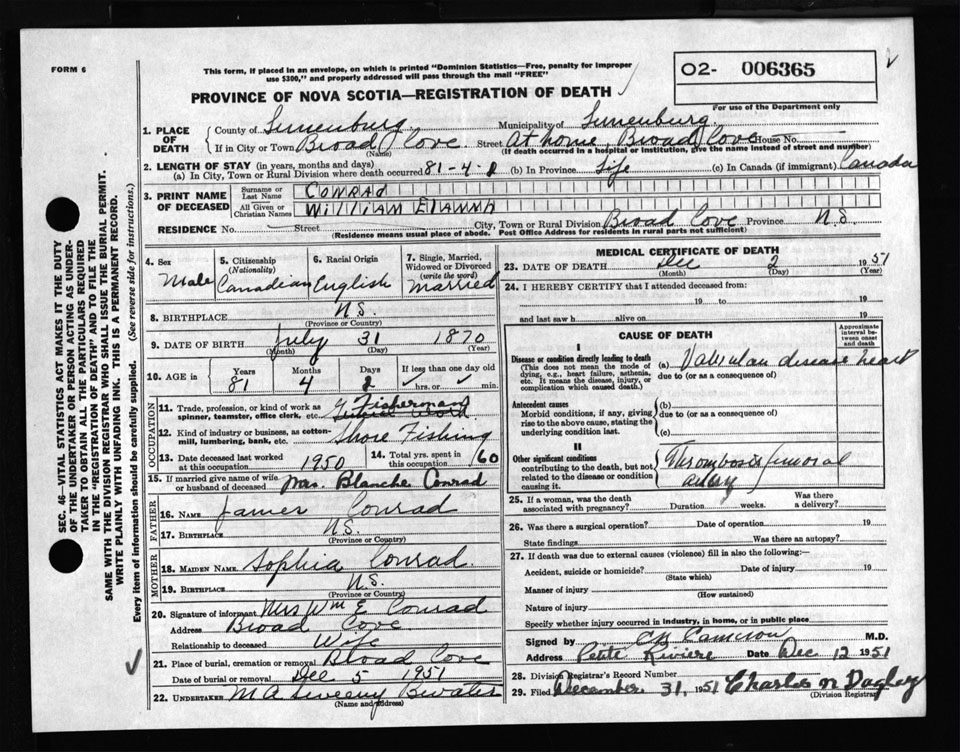 FORM 6
This form, if placed in an envelope, on which is printed "Dominion Statistics—Free, penalty for improper
use $300," and properly addressed will pass through the mail "FREE"
02- 006365
For use of the Department only
PROVINCE OF NOVA SCOTIA—REGISTRATION OF DEATH
1. PLACE OF DEATH
County of Lunenburg Municipality of Lunenburg
If in City or Town Broad Cove Street At home, Broad Cove House No.
(Name) (If death occurred in a hospital or institution, give the name instead of street and number)
2. LENGTH OF STAY (in years, months and days)
(a) In City, Town or Rural Division where death occurred 81-4- (b) In Province Life (c) In Canada (if immigrant) Canada
3. PRINT NAME OF DECEASED
Surname or Last Name CONRAD
All Given or Christian Names WILLIAM
RESIDENCE No. Street City, Town or Rural Division Broad Cove Province N.S.
(Residence means usual place of abode. Post Office Address for residents in rural parts not sufficient)
4. Sex Male
5. Citizenship (Nationality) Canadian
6. Racial Origin English
7. Single, Married, Widowed or Divorced (write the word) Married
8. BIRTHPLACE N.S.
(Province or Country)
9. DATE OF BIRTH July 31 1870
(Month) (Day) (Year)
10. AGE in Years 81 Months 4 Days If less than one day old hrs. or min.
OCCUPATION
11. Trade, profession, or kind of work as spinner, teamster, office clerk, etc. Fisherman
12. Kind of industry or business, as cotton-mill, lumbering, bank, etc. Shore Fishing
13. Date deceased last worked at this occupation 1950
14. Total yrs. spent in this occupation 60
15. If married give name of wife or husband of deceased Mrs. Blanche Conrad
FATHER
16. NAME James Conrad
17. BIRTHPLACE N.S.
(Province or Country)
MOTHER
18. MAIDEN NAME Sophia Conrad
19. BIRTHPLACE N.S.
(Province or Country)
20. Signature of informant Mrs Wm E Conrad
Address Broad Cove
Relationship to deceased Wife
21. Place of burial, cremation or removal Broad Cove
Date of burial or removal Dec 5 1951
22. UNDERTAKER M A Sweeny Bwater
(Name and address)
MEDICAL CERTIFICATE OF DEATH
23. DATE OF DEATH Dec 2 1951
(Month) (Day) (Year)
24. I HEREBY CERTIFY that I attended deceased from:
19 to 19
and last saw h alive on 19
CAUSE OF DEATH
Approximate interval between onset and death
I
Disease or condition directly leading to death
(This does not mean the mode of dying, e.g., heart failure, asthenia, etc. It means the disease, injury, or complication which caused death.)
(a) Valvular disease heart
due to (or as a consequence of)
Antecedent causes
Morbid conditions, if any, giving rise to the above cause, stating the underlying condition last.
(b)
due to (or as a consequence of)
(c)
II
Other significant conditions
contributing to the death, but not related to the disease or condition causing it.
Thrombosis femoral
artery
25. If a woman, was the death associated with pregnancy? Duration weeks. Was there a delivery?
26. Was there a surgical operation? Date of operation 19
State findings Was there an autopsy?
27. If death was due to external causes (violence) fill in also the following:—
Accident, suicide or homicide? Date of injury 19
(State which)
Manner of injury
(How sustained)
Nature of injury
Specify whether injury occurred in industry, in home, or in public place
Signed by Cameron M.D.
Address Petite Riviere Date Dec. 12 1951
28. Division Registrar's Record Number
29. Filed December 31, 1951 Charles N Dagley
(Division Registrar)
SEC. 46—VITAL STATISTICS ACT MAKES IT THE DUTY
OF THE UNDERTAKER OR PERSON ACTING AS UNDER-
TAKER TO OBTAIN ALL THE PARTICULARS REQUIRED
IN THE "REGISTRATION OF DEATH" AND TO FILE THE
SAME WITH THE DIVISION REGISTRAR WHO SHALL ISSUE THE BURIAL PERMIT.
WRITE PLAINLY WITH UNFADING INK. THIS IS A PERMANENT RECORD.
Every item of information should be carefully supplied. (See reverse side for instructions.)